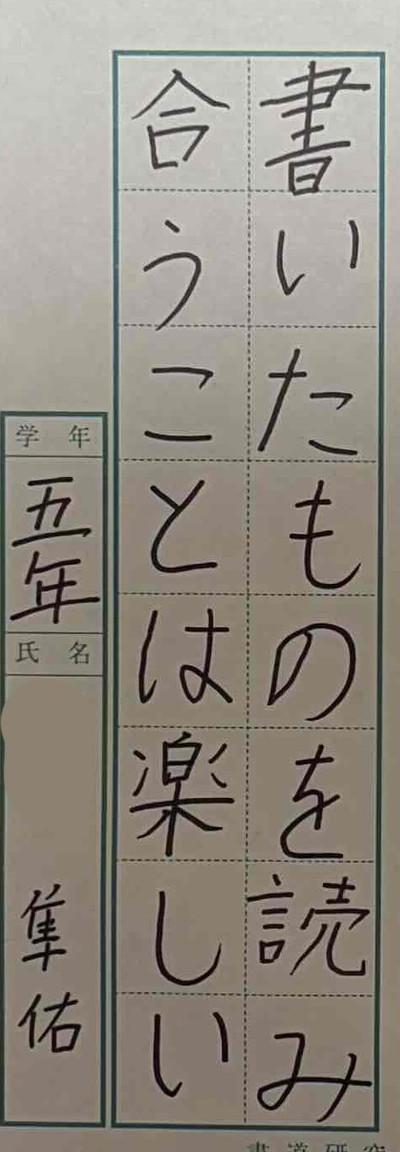 書いたものを読み
合うことは楽しい
学年
五年
氏名
隼佑
書道研究